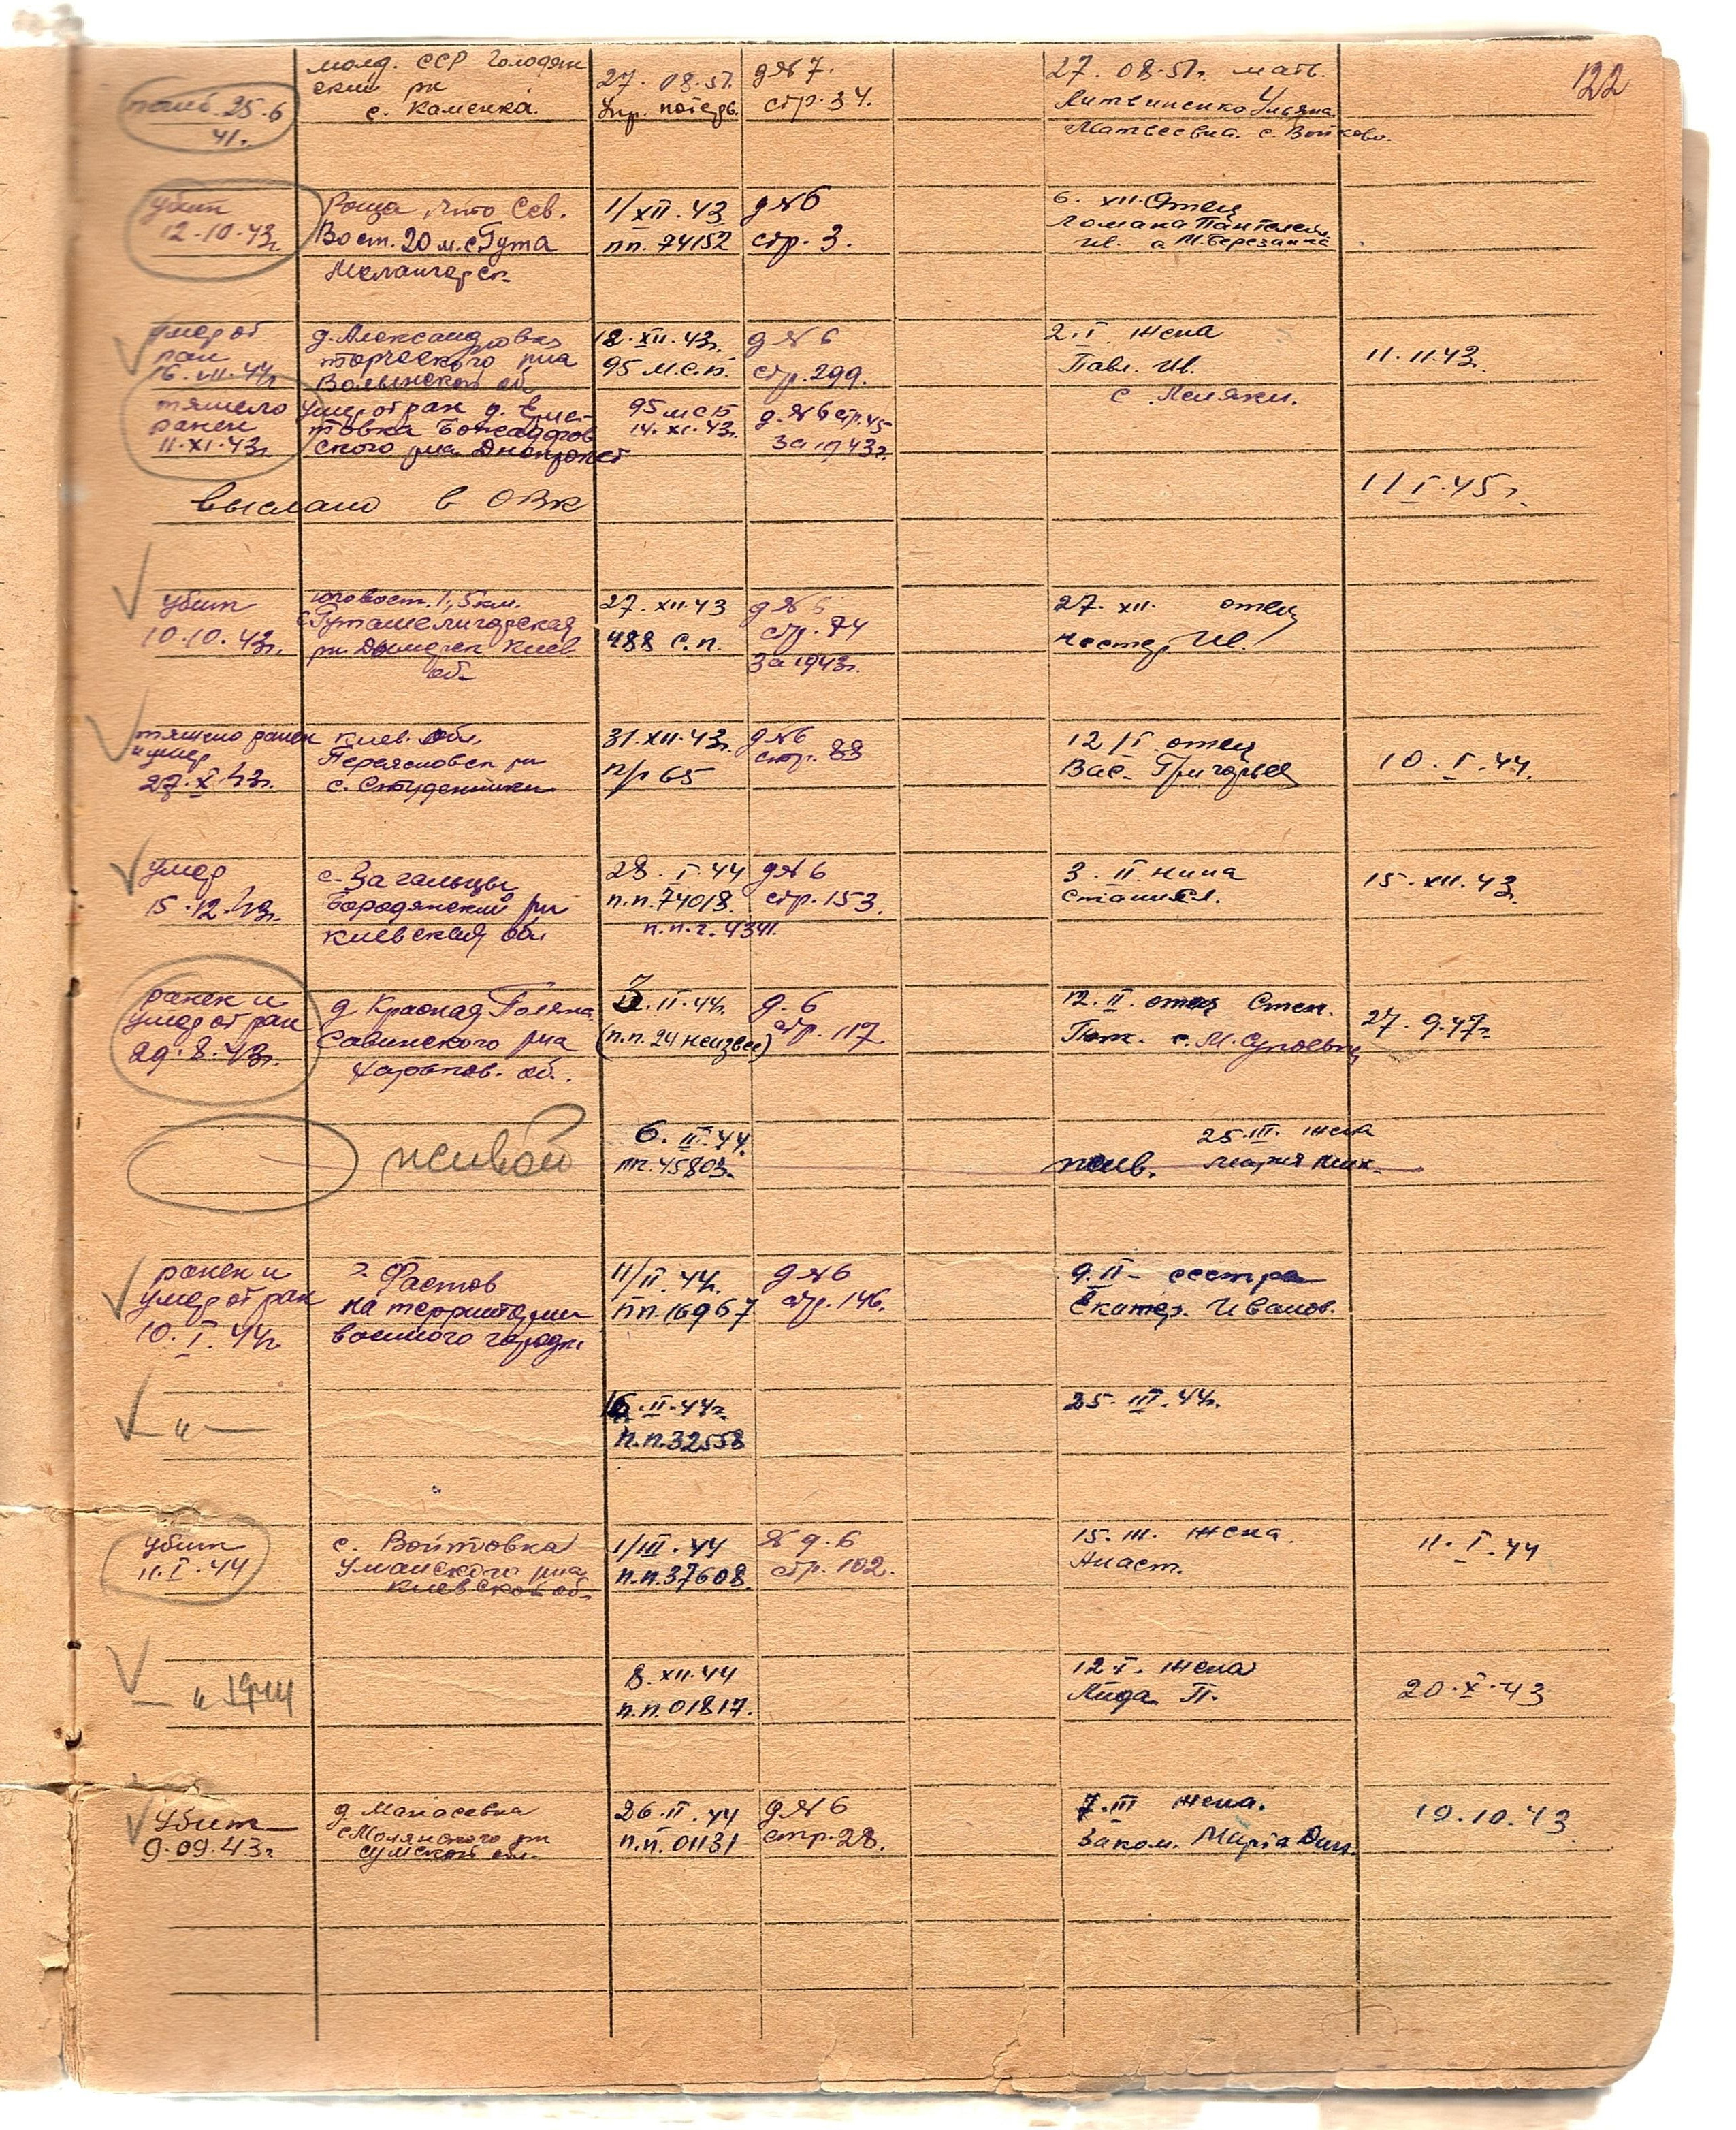 122
молд. ССР Голодян
ский рн
с. Каменка.
погиб. 25.6
41г.
27. 08.51.
Упр. потерь.
д№7.
стр. 34.
27. 08.51г. мать.
Литвиненко Ульяна
Матвеевна. с. Войково.
убит
12.10.43г.
Роща, что Сев.
Вост. 20 м. с. Гута
Межигорск.
1/XII.43
пп. 74152
д№6
стр. 3.
6. XII. Отец
Ломака Пантелей
Ив. с М. Березанка
умер от
ран
16. VII. 44г.
д. Александровка
Торческого рна
Волынской об.
18. XII. 43г.
95 м.с.п.
д№6
стр. 299.
2. I. жена
Павл. Ив.
с. Леляки.
11.11.43.
тяжело
ранен
11.XI.43г.
умер от ран д.
ского рна Днепропет
95 мсб
14. XI. 43г.
д. №6 стр. 45
за 1943г.
выслано в ОВК
11/I.45г.
убит
10.10.43г.
юговост. 1,5 км.
с. Гута Межигорская
рн Дымерск Киев
об.
27. XII. 43
488 с.п.
д№6
стр. 74
за 1943г.
27. XII. отец
Нестер. Ив.
тяжело ранен
и умер
27.X.43г.
Киев. обл.
Переясловск рн
с. Студенники
31. XII. 43г.
п/п 65
д№6
стр. 88
12/I. отец
Вас. Григорьев
10. I. 44.
умер
15.12.43г.
с. Загальцы
Бородянский рн
Киевская обл
28. I. 44
п.п. 74018.
п.п.г. 4341.
д№6
стр. 153.
3. II.
15. XII. 43.
ранен и
умер от ран
29.8.43г.
д. Красная Поляна
Савинского рна
Харьков. об.
3. II. 44г.
(п.п. 24 неизвес)
д. 6
стр. 117
12. II. отец Степ.
с. М. Супоевку
27. 9.47г.
живой
6. III. 44.
пп. 45803.
25. III. жена
жив. Мария
ранен и
умер от ран
10. I. 44г
г. Фастов
на территории
военного городк.
11/II. 44г.
пп. 16967
д№6
стр. 146.
9. II - сестра
Екатер. Иванов.
— „ —
16. II. 44г.
п.п. 32558
25. III. 44г.
убит
11. I. 44
с. Войтовка
Уманского рна
Киевской об.
1/III. 44
п.п. 37608.
№ д. 6
стр. 102.
15. III. жена.
Анаст.
11. I. 44
— „ 1944
8. XII. 44
п.п. 01817.
12 X. жена
Лида П.
20. X. 43
убит
9.09.43г
д. Манасевка
Смолянского рн
Сумской обл.
26. II. 44
п.п. 01131
д№6
стр. 28.
7. III жена.
Заком. Марiа Дан.
19.10.43